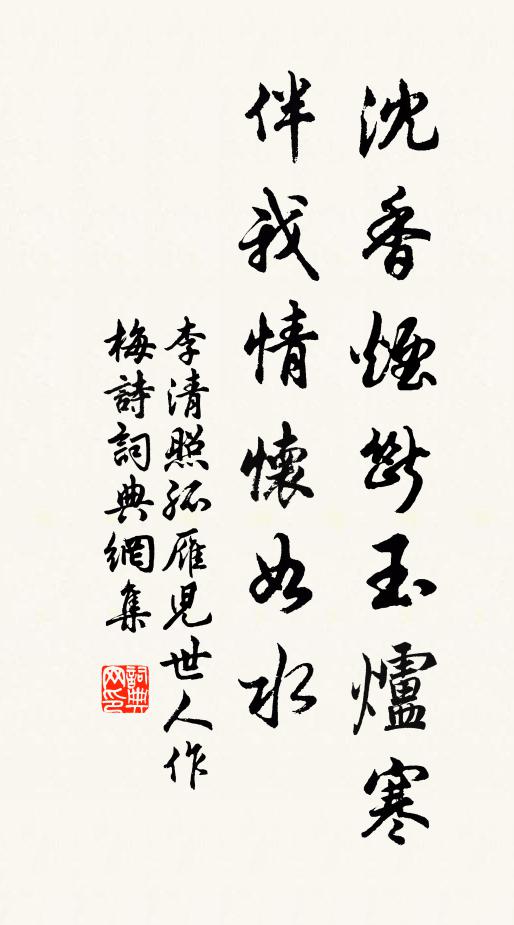 沈香煙斷玉爐寒
伴我情懷如水
李清照孤雁兒世人作
梅詩詞典網集
詞典網印